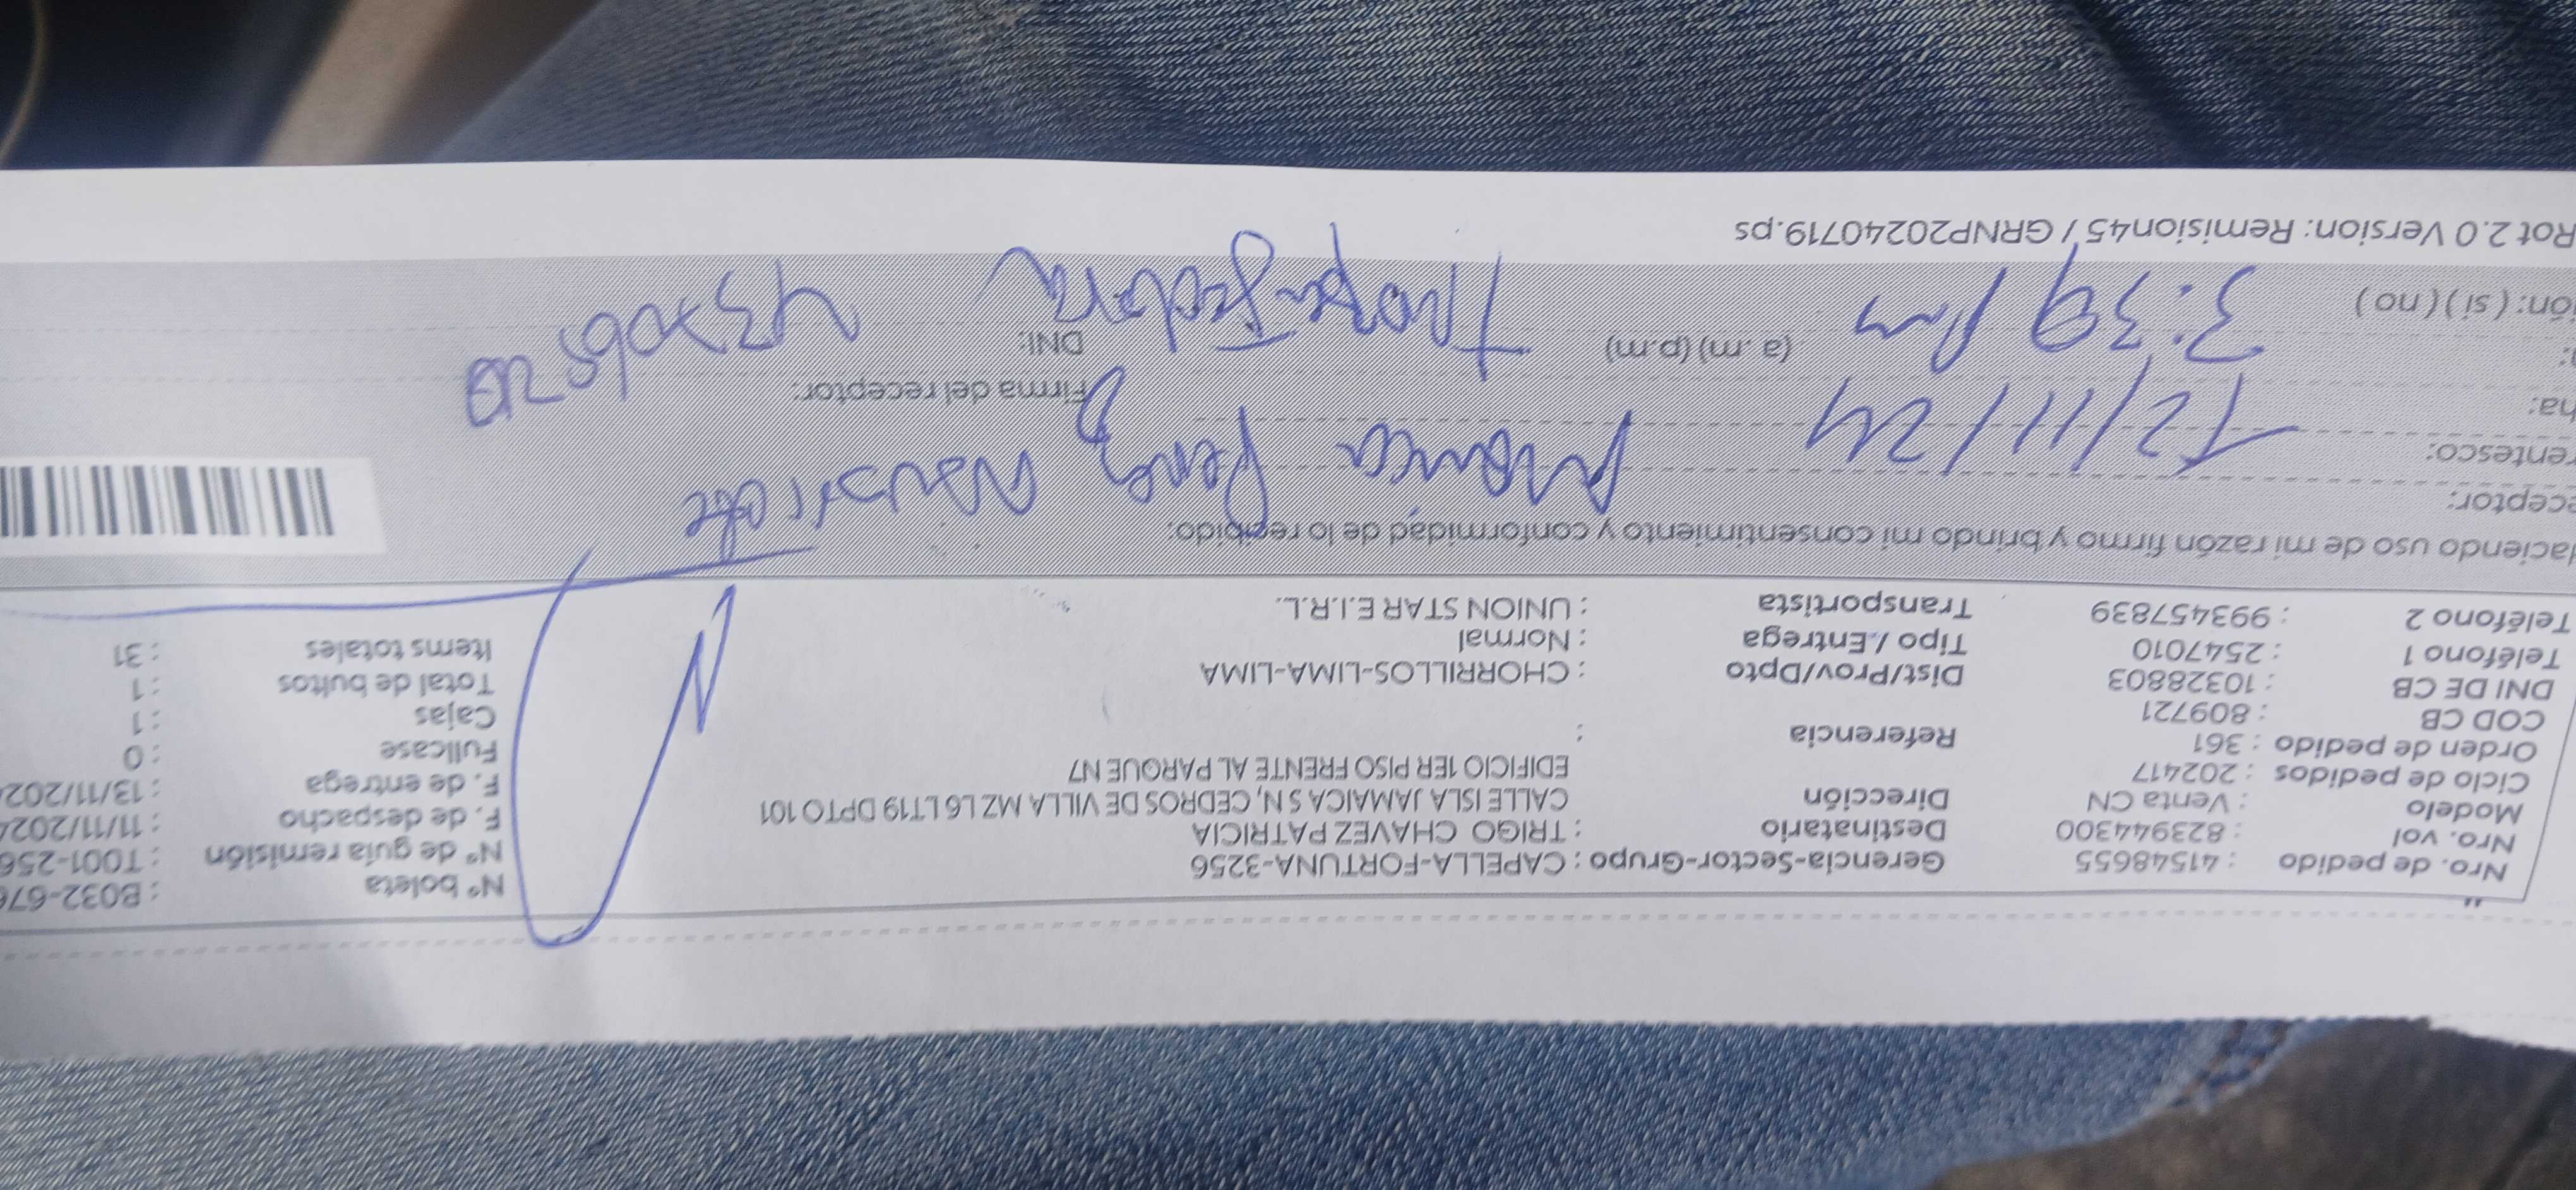 Nro. de pedido : 41548655 Gerencia-Sector-Grupo : CAPELLA-FORTUNA-3256 N° boleta : B032-676
Nro. vol : 823944300 Destinatario : TRIGO CHAVEZ PATRICIA N° de guía remisión : T001-256
Modelo : Venta CN Dirección CALLE ISLA JAMAICA S N, CEDROS DE VILLA MZ L6 LT19 DPTO 101 F. de despacho : 11/11/2024
Ciclo de pedidos : 202417 EDIFICIO 1ER PISO FRENTE AL PARQUE N7 F. de entrega : 13/11/202
Orden de pedido : 361 Referencia : Fullcase : 0
COD CB : 809721 Cajas : 1
DNI DE CB : 10328803 Dist/Prov/Dpto : CHORRILLOS-LIMA-LIMA Total de bultos : 1
Teléfono 1 : 2547010 Tipo /.Entrega : Normal Items totales : 31
Teléfono 2 : 993457839 Transportista : UNION STAR E.I.R.L.
Haciendo uso de mi razón firmo y brindo mi consentimiento y conformidad de lo recibido:
eceptor:
rentesco: Monica Perez
ha: 12/11/24 Firma del receptor:
: 3:39 pm (a. m) (p.m) DNI:
ón: ( si ) ( no )
Rot 2.0 Version: Remision45 / GRNP20240719.ps